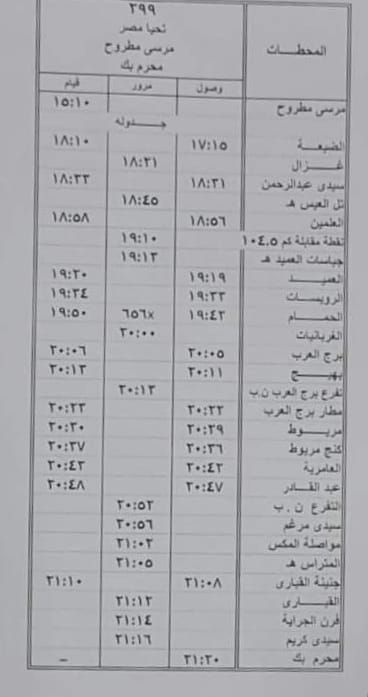 ٢٩٩
تحيا مصر
مرسى مطروح
محرم بك
المحطات
وصول مرور قيام
مرسى مطروح ١٥:١٠
جدوله
الضبعة ١٧:١٥ ١٨:١٠
غزال ١٨:٢١
سيدى عبدالرحمن ١٨:٣١ ١٨:٣٣
تل العيس هـ ١٨:٤٥
العلمين ١٨:٥٦ ١٨:٥٨
نقطة مقابلة كم ١٠٤.٥ ١٩:١٠
جباسات العميد هـ ١٩:١٣
العميد ١٩:١٩ ١٩:٢٠
الرويسات ١٩:٣٣ ١٩:٣٤
الحمام ١٩:٤٢ ٦٥٦x ١٩:٥٠
الغربانيات ٢٠:٠٠
برج العرب ٢٠:٠٥ ٢٠:٠٦
بهيج ٢٠:١١ ٢٠:١٢
تفرع برج العرب ن.ب ٢٠:١٣
مطار برج العرب ٢٠:٢٢ ٢٠:٢٣
مريوط ٢٠:٢٩ ٢٠:٣٠
كنج مريوط ٢٠:٣٦ ٢٠:٣٧
العامرية ٢٠:٤٢ ٢٠:٤٣
عبد القادر ٢٠:٤٧ ٢٠:٤٨
التفرع ن.ب ٢٠:٥٢
سيدى مرغم ٢٠:٥٦
مواصلة المكس ٢١:٠٢
المتراس هـ ٢١:٠٥
جنينة القبارى ٢١:٠٨ ٢١:١٠
القبارى ٢١:١٢
فرن الجراية ٢١:١٤
سيدى كريم ٢١:١٦
محرم بك ٢١:٢٠ –